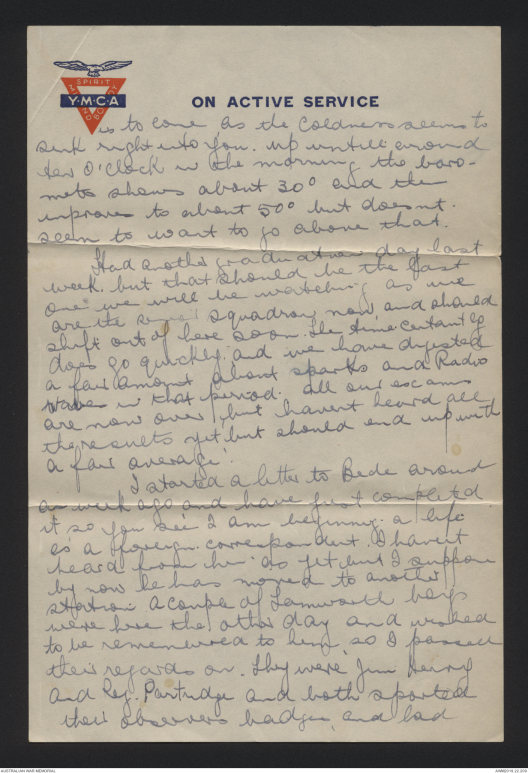 SPIRIT
MIND
BODY
Y·M·C·A
ON ACTIVE SERVICE
is to come as the coldness seems to
sink right into you. up untill around
ten O'Clock in the morning the baro-
meto shows about 30° and the
improves to about 50° but doesnt.
seem to want to go above that.
Had another graduation day last
week. but that should be the last
one we will be watching as we
are the squadron now, and should
shift out of here soon. The time certainly
does go quickly. and we have digested
a fair amount about sparks and Radio
waves in that period. all our exams
are now over, but havent heard all
the results yet but should end up with
a fair average.
I started a letter to Bede around
a week ago and have just completed
it, so you see I am beginning a life
as a foreign correspondent. I havent
heard from him as yet but I suppose
by now he has moved to another
station. A couple of Tamworth boys
were here the other day and wished
to be remembered to him, so I passed
their regards on. They were Jim Henry
and Reg. Partridge and both sported
their observers badges, and had
AUSTRALIAN WAR MEMORIAL